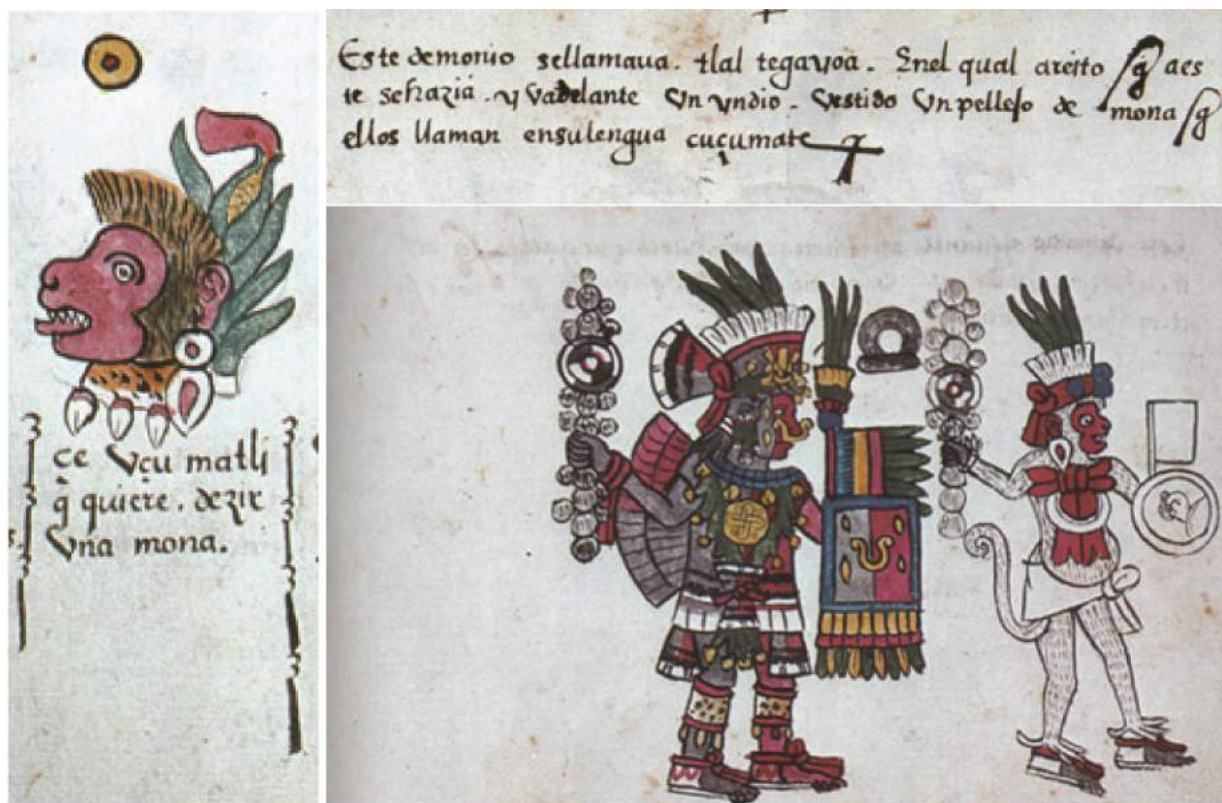 Este demonio sellamaua. tlal tegayoa. Enel qual areito q̃ aes
te sehazia. yvadelante vn yndio. vestido vn pellejo de mona q̃
ellos llaman ensulengua cuçumate
çe vçu matli
q̃ quiere. dezir
vna mona.